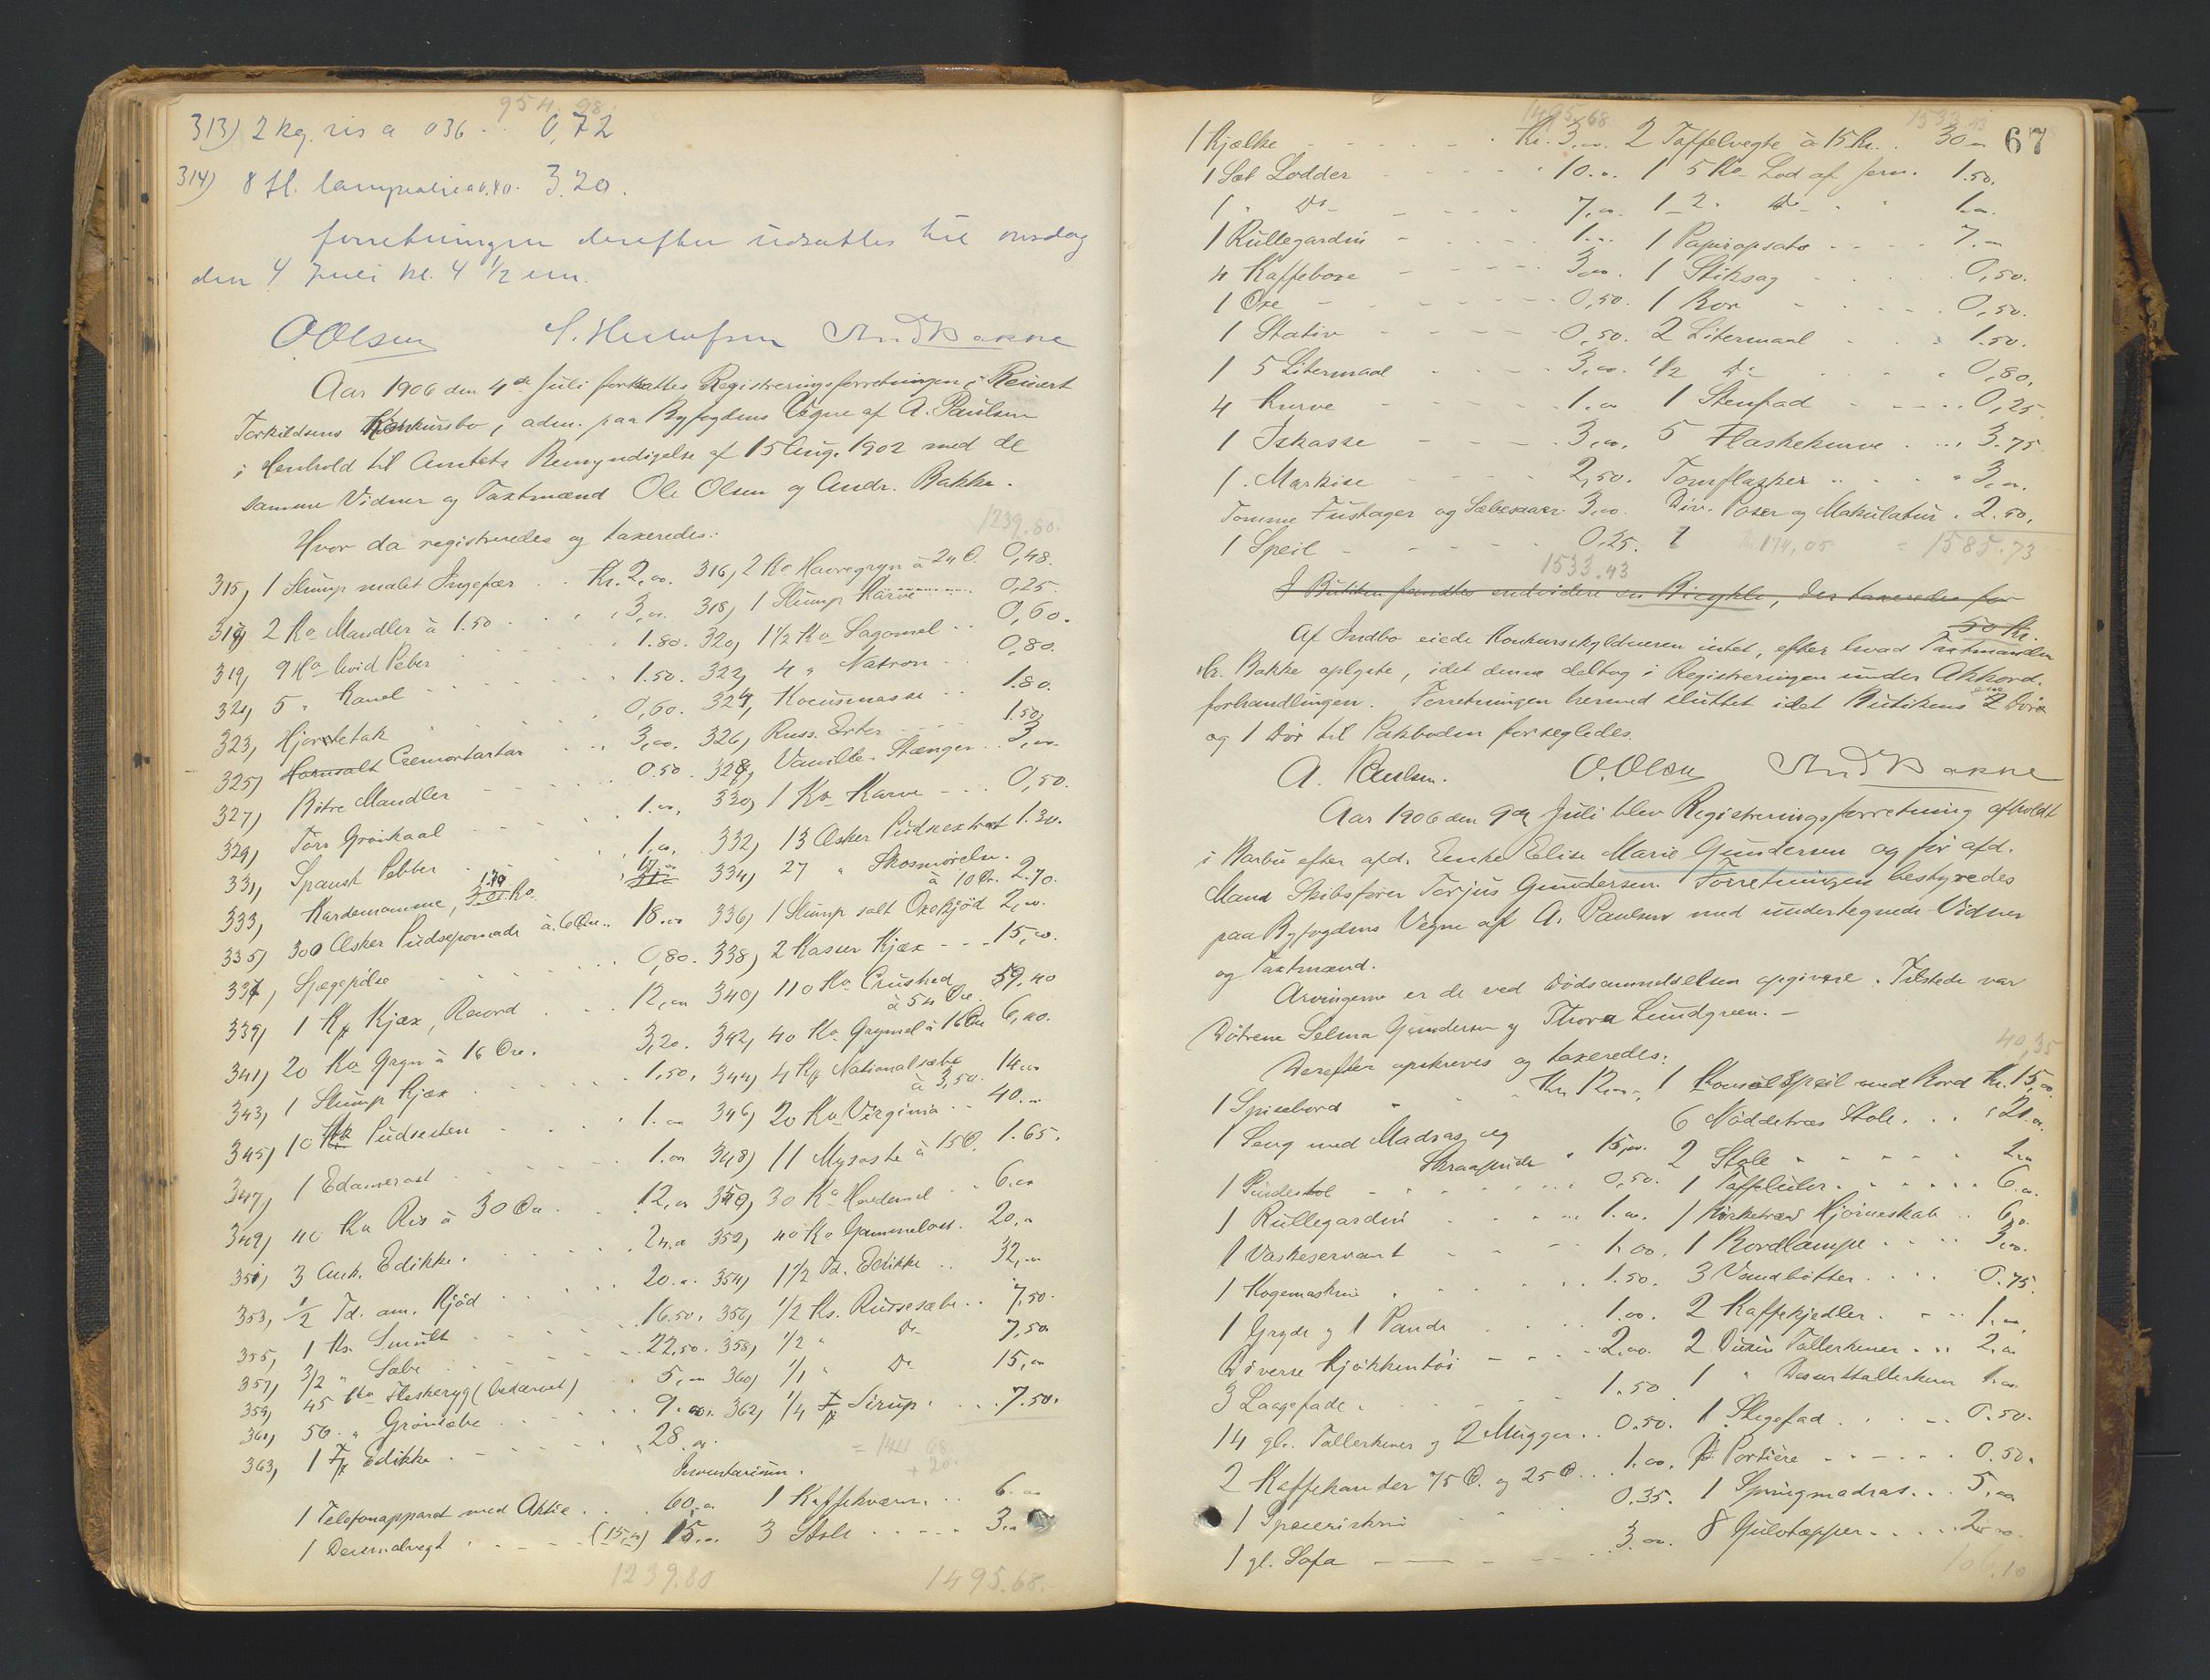 954.98
313) 2 kg. ris a 036 .. 0,72
314) 8 fl. lampeolie a 0.40. 3.20.
forretningen derefter udsattes til onsdag
den 4 Juli kl. 4 1/2 em.
O Olsen And Bakke
Aar 1906 den 4de Juli fortsattes Registreringsforretningen i Reinert
Torkildsens Konkursbo, adm. paa Byfogdens Vegne af A. Paulsen
i Henhold til Amtets Bemyndigelse af 15 Aug. 1902 med de
samme Vidner og Taxtmænd Ole Olsen og Andr. Bakke.
Hvor da registreredes og taxeredes:
1239.80.
315, 1 Slump malet Ingefær .. Kr. 2,00. 316, 2 Ko Havregryn à 24 Ø. 0,48.
317, 2 Ko Mandler à 1.50 . . . 3,00. 318, 1 Slump Karve ... 0,25.
319, 9 Ho hvid Peber 1.80. 320, 1 1/2 Ko Sagomel .. 0,60.
321, 5 " Kanel 1.50. 322, 4 " Natron .. 0,80.
323, Hjortetak 0,60. 324, Kocusmasse .. 1.80.
325, Hornsalt Cremortartar 3,00. 326, Russ. Erter 1.50.
327, Bitre Mandler 0.50. 328, Vanille-Stænger .. 3,00.
329, Tørr Grønkaal 1.00. 330, 1 Ko Karve ... 0,50.
331, Spansk Pebber 1,00. 332, 13 Æsker Pudsextrat 1.30.
333, Kardemomme, 334, 27 " Skosmørelse.
à 10 Ør. 2.70.
335, 300 Æsker Pudsepomade à 6 Øre.. 18.00 336, 1 Slump salt Oxekjød 2,00.
337, Sjøgepølse 0,80. 338, 2 Kasser Kjæx ... 15,00.
339, 1 Kx Kjæx, Record 12,00 340, 110 Ko Crushed
à 54 Øre. 59,40
341, 20 Ko Gryn à 16 Øre. 3,20. 342, 40 Ko Grynmel à 16 Øre 6,40.
343, 1 Slump Kjæx 1,50. 344, 4 Kx Nationalsæbe
à 3,50. 14.00
345, 10 Pudsesten 1.00 346, 20 Ko Virginia .. 40.00
347, 1 Edamerost 1.00 348, 11 Mysoste à 15 Ø. 1.65.
349, 40 Ko Ris à 30 Øre 12,00 350, 30 Ko Hvedemel .. 6.00
351, 3 Ank. Edikke. 24.00 352, 40 Ko Gammelost. 20,00
353, 1/2 Td. am. Kjød 20.00. 354, 1 1/2 Td. Edikke .. 32,00
355, 1 Ks. Smult 16.50. 356, 1/2 Ks. Russesæbe .. 7,50.
357, 3/2 " Sæbe 22,50. 358, 1/2 " Do 7,50
359, 45 Ko Fleskeryg (bedærvet) 5,00 360, 1/1 " Do 15,00
361, 50 " Grønsæbe 9.00. 362, 1/4 Fx Sirup. ... 7.50.
363, 1 Fx Edikke 28.00.
Inventarium.
1 Telefonapparat med Aktie .. 60,00 1 Kaffekværn. .. 6.00
1 Decimalvegt (15,00) 15,00. 3 Stole ..... 3,00
1239.80 1495.68.
67
1495.68 1533.43
1 Kjælke Kr. 3,00. 2 Taffelvegte à 15 Kr. . 30.00
1 Sæt Lodder 10.00. 1 5 Ko Lod af Jern. 1.50.
1 " Do 7,00. 1 2 " Do 1.00.
1 Rullegardin 1.00. 1 Papiropsats .... 7.00
4 Kaffeboxe 3,00. 1 Stiksag 0,50.
1 Øxe 0,50. 1 Bor 0,50.
1 Stativ 0,50. 2 Litermaal 1.50.
1 5 Litermaal 3,00. 1/2 Do 0,80.
4 Kurve 1.00 1 Stenfad 0,25.
1 Iskasse 3,00. 5 Flaskekurve .... 3.75
1 Markise 2,50. Tomflasker 3,00.
Tomme Fustager og Sæbekasser 3,00. Div. Poser og Makulatur . 2.50.
1 Speil 0,25. 174,05 = 1585.73
1533.43
I Butiken fandtes endvidere en Bicykle, der taxeredes for
50 Kr.
Af Indbo eiede Konkursskyldneren intet, efter hvad Taxtmanden
Hr. Bakke oplyste, idet denne deltog i Registreringen under Akkord-
forhandlingen. Forretningen hermed sluttet idet Butikens 2 Døre
og 1 Dør til Pakboden forsegledes.
A. Paulsen. O. Olsen And Bakke
Aar 1906 den 9de Juli blev Registreringsforretning afholdt
i Barbu efter afd. Enke Elise Marie Gundersen og før afd.
Mand Skibsfører Torjus Gundersen. Forretningen bestyredes
paa Byfogdens Vegne af A. Paulsen med undertegnede Vidner
og Taxtmænd.
Arvingerne er de ved Dødsanmeldelsen opgivne. Tilstede var
Døtrene Selma Gundersen og Thora Lundgreen. -
Derefter opskreves og taxeredes:
40,35
1 Spisebord Kr. 12.00, 1 Konsolspeil med Bord Kr. 15,00.
1 Seng med Madras og 6 Nøddetræs Stole. .. 21.00.
Skraapude " 15,00. 2 Stole 2.00
1 Pindestol 0,50. 1 Taffeluhr 6.00.
1 Rullegardin 1.00. 1 Birketræs Hjørneskab .. 6,00.
1 Vaskeservant 1.00. 1 Bordlampe .... 3,00.
1 Kogemaskine 1.50. 3 Vandbøtter .... 0.75.
1 Gryde og 1 Pande 1.00. 2 Kaffekjedler. ... 1.00
Diverse Kjøkkentøi 2,00. 2 Dusin Tallerkener ... 2.00
3 Laagefade . 1.50 1 " Desserttallerkener 1.00
14 gl. Tallerkener og 2 Mugger .. 0.50. 1 Stegefad .... 0.50.
2 Kaffekander 75 Ø. og 25 Ø. .. 1.00. Portiere ..... 0.50.
1 0.35. 1 Springmadras ... 5,00
1 gl. Sofa 3.00. 8 Gulvtæpper ..... 2.00
101.10